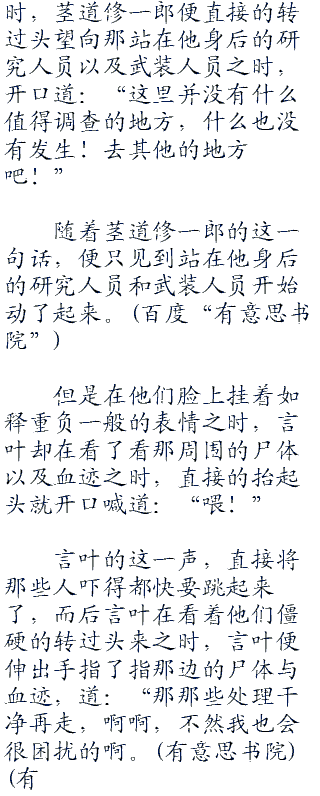 时，茎道修一郎便直接的转
过头望向那站在他身后的研
究人员以及武装人员之时，
开口道：“这里并没有什么
值得调查的地方，什么也没
有发生！去其他的地方
吧！”
随着茎道修一郎的这一
句话，便只见到站在他身后
的研究人员和武装人员开始
动了起来。(百度“有意思书
院”)
但是在他们脸上挂着如
释重负一般的表情之时，言
叶却在看了看那周围的尸体
以及血迹之时，直接的抬起
头就开口喊道：“喂！”
言叶的这一声，直接将
那些人吓得都快要跳起来
了，而后言叶在看着他们僵
硬的转过头来之时，言叶便
伸出手指了指那边的尸体与
血迹，道：“那那些处理干
净再走，啊啊，不然我也会
很困扰的啊。(有意思书院)
(有